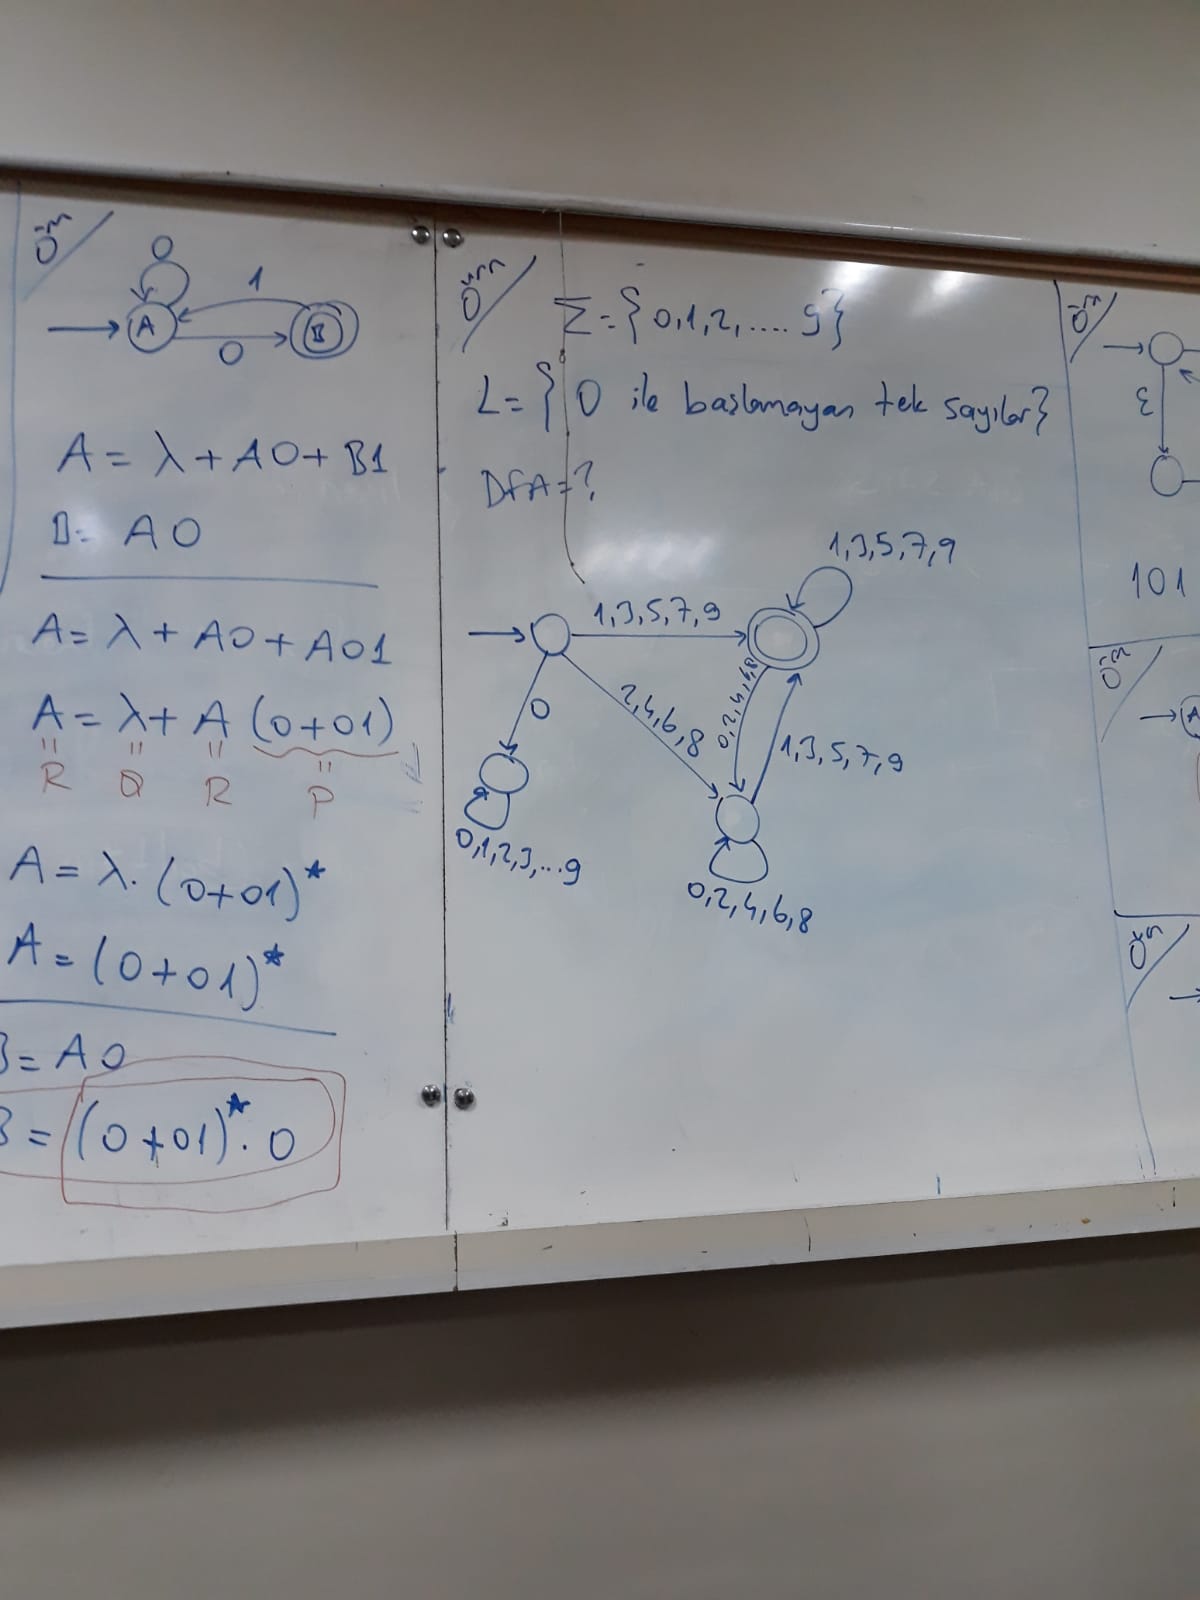 Örn
0
1
A
B
0
A = λ + A0 + B1
B = A0
A = λ + A0 + A01
A = λ + A (0+01)
R Q R P
A = λ. (0+01)*
A = (0+01)*
B = A0
B = (0+01)*. 0
Örn
Σ = { 0,1,2, .... 9}
L = { 0 ile başlamayan tek sayılar}
DFA = ?
1,3,5,7,9
1,3,5,7,9
0
2,4,6,8
0,2,4,6,8
1,3,5,7,9
0,1,2,3,...9
0,2,4,6,8
Örn
ε
101
Örn
A
Örn